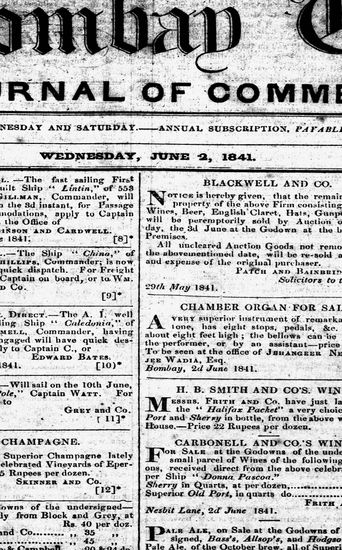 ombay
URNAL OF COMME
NESDAY AND SATURDAY.—ANNUAL SUBSCRIPTION, PAYABL
WEDNESDAY, JUNE 2, 1841.
L.—The fast sailing First
uilt Ship "Lintin," of 553
GILLMAN, Commander, will
n the 3d instant, for Passage
modations, apply to Captain
the Office of
INSON AND CARDWELL.
e 1841. [8]*
.—The Ship "China," of
PHILLIPS, Commander; is now
quick dispatch. For Freight
Captain on board, or to WM.
D CO.
[9]*
, DIRECT.—The A. 1. well
ling Ship "Caledonia," of
MELL, Commander, having
engaged will have quick des-
ly to Captain C., or
EDWARD BATES.
1841. [10]*
—Will sail on the 10th June,
Pole," Captain WATT. For
to
GREY AND CO.
[11]*
CHAMPAGNE.
Superior Champagne lately
elebrated Vineyards of Eper-
5 Rupees per dozen.
SKINNER AND CO.
[12]*
downs of the undersigned—
ly from Block and Grey, at
Rs. 40 per doz.
nd Co. ,, 35 ,,
,, 45
BLACKWELL AND CO.
NOTICE is hereby given, that the remain
property of the above Firm consisting
Wines, Beer, English Claret, Hats, Gunp
will be peremptorily sold by Auction o
day, the 3d June at the Godown at the b
Premises.
All uncleared Auction Goods not remo
the abovementioned date, will be re-sold a
and expense of the original purchaser.
PATCH AND BAINBRID
Solicitors to t
29th May 1841.
CHAMBER ORGAN FOR SAL
A VERY superior instrument of remarka
tone, has eight stops, pedals, &c.
about eight feet high; the bellows can be
the performer, or by an assistant—price
To be seen at the office of JEHANGEER NE
JEE WADIA, Esq.
Bombay, 2d June 1841.
H. B. SMITH AND CO'S. WIN
MESSRS. FRITH AND CO. have just la
the "Halifax Packet" a very choic
Port and Sherry in bottle, from the above w
House.—Price 22 Rupees per dozen.
CARBONELL AND CO.'S WIN
FOR SALE, at the Godowns of the unde
small parcel of Wines of the following
ons, received direct from the above celebr
per Ship "Donna Pascoa."
Sherry in Quarts, at per dozen,
Superior Old Port, in quarts do
FRITH
Nesbit Lane, 2d June 1841.
PALE ALE, on Sale at the Godowns of
signed, Bass's, Allsop's, and Hodgson
Pale Ale, of the October brew, all of Super